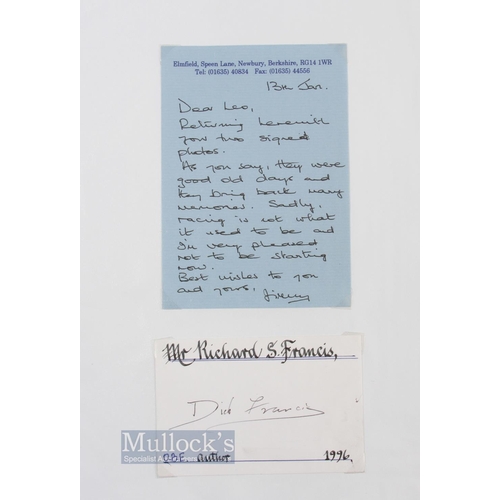 Elmfield, Speen Lane, Newbury, Berkshire, RG14 1WR
Tel: (01635) 40834 Fax: (01635) 44556
13th Jan.
Dear Leo,
Returning herewith
your two signed
photos.
As you say, they were
good old days and
they bring back many
memories. Sadly,
racing is not what
it used to be and
I'm very pleased
not to be starting
now.
Best wishes to you
and yours,
Jimmy
Mr. Richard S. Francis,
Dick Francis
O.B.E. Author 1996.
Mullock's
Specialist Auctioneers